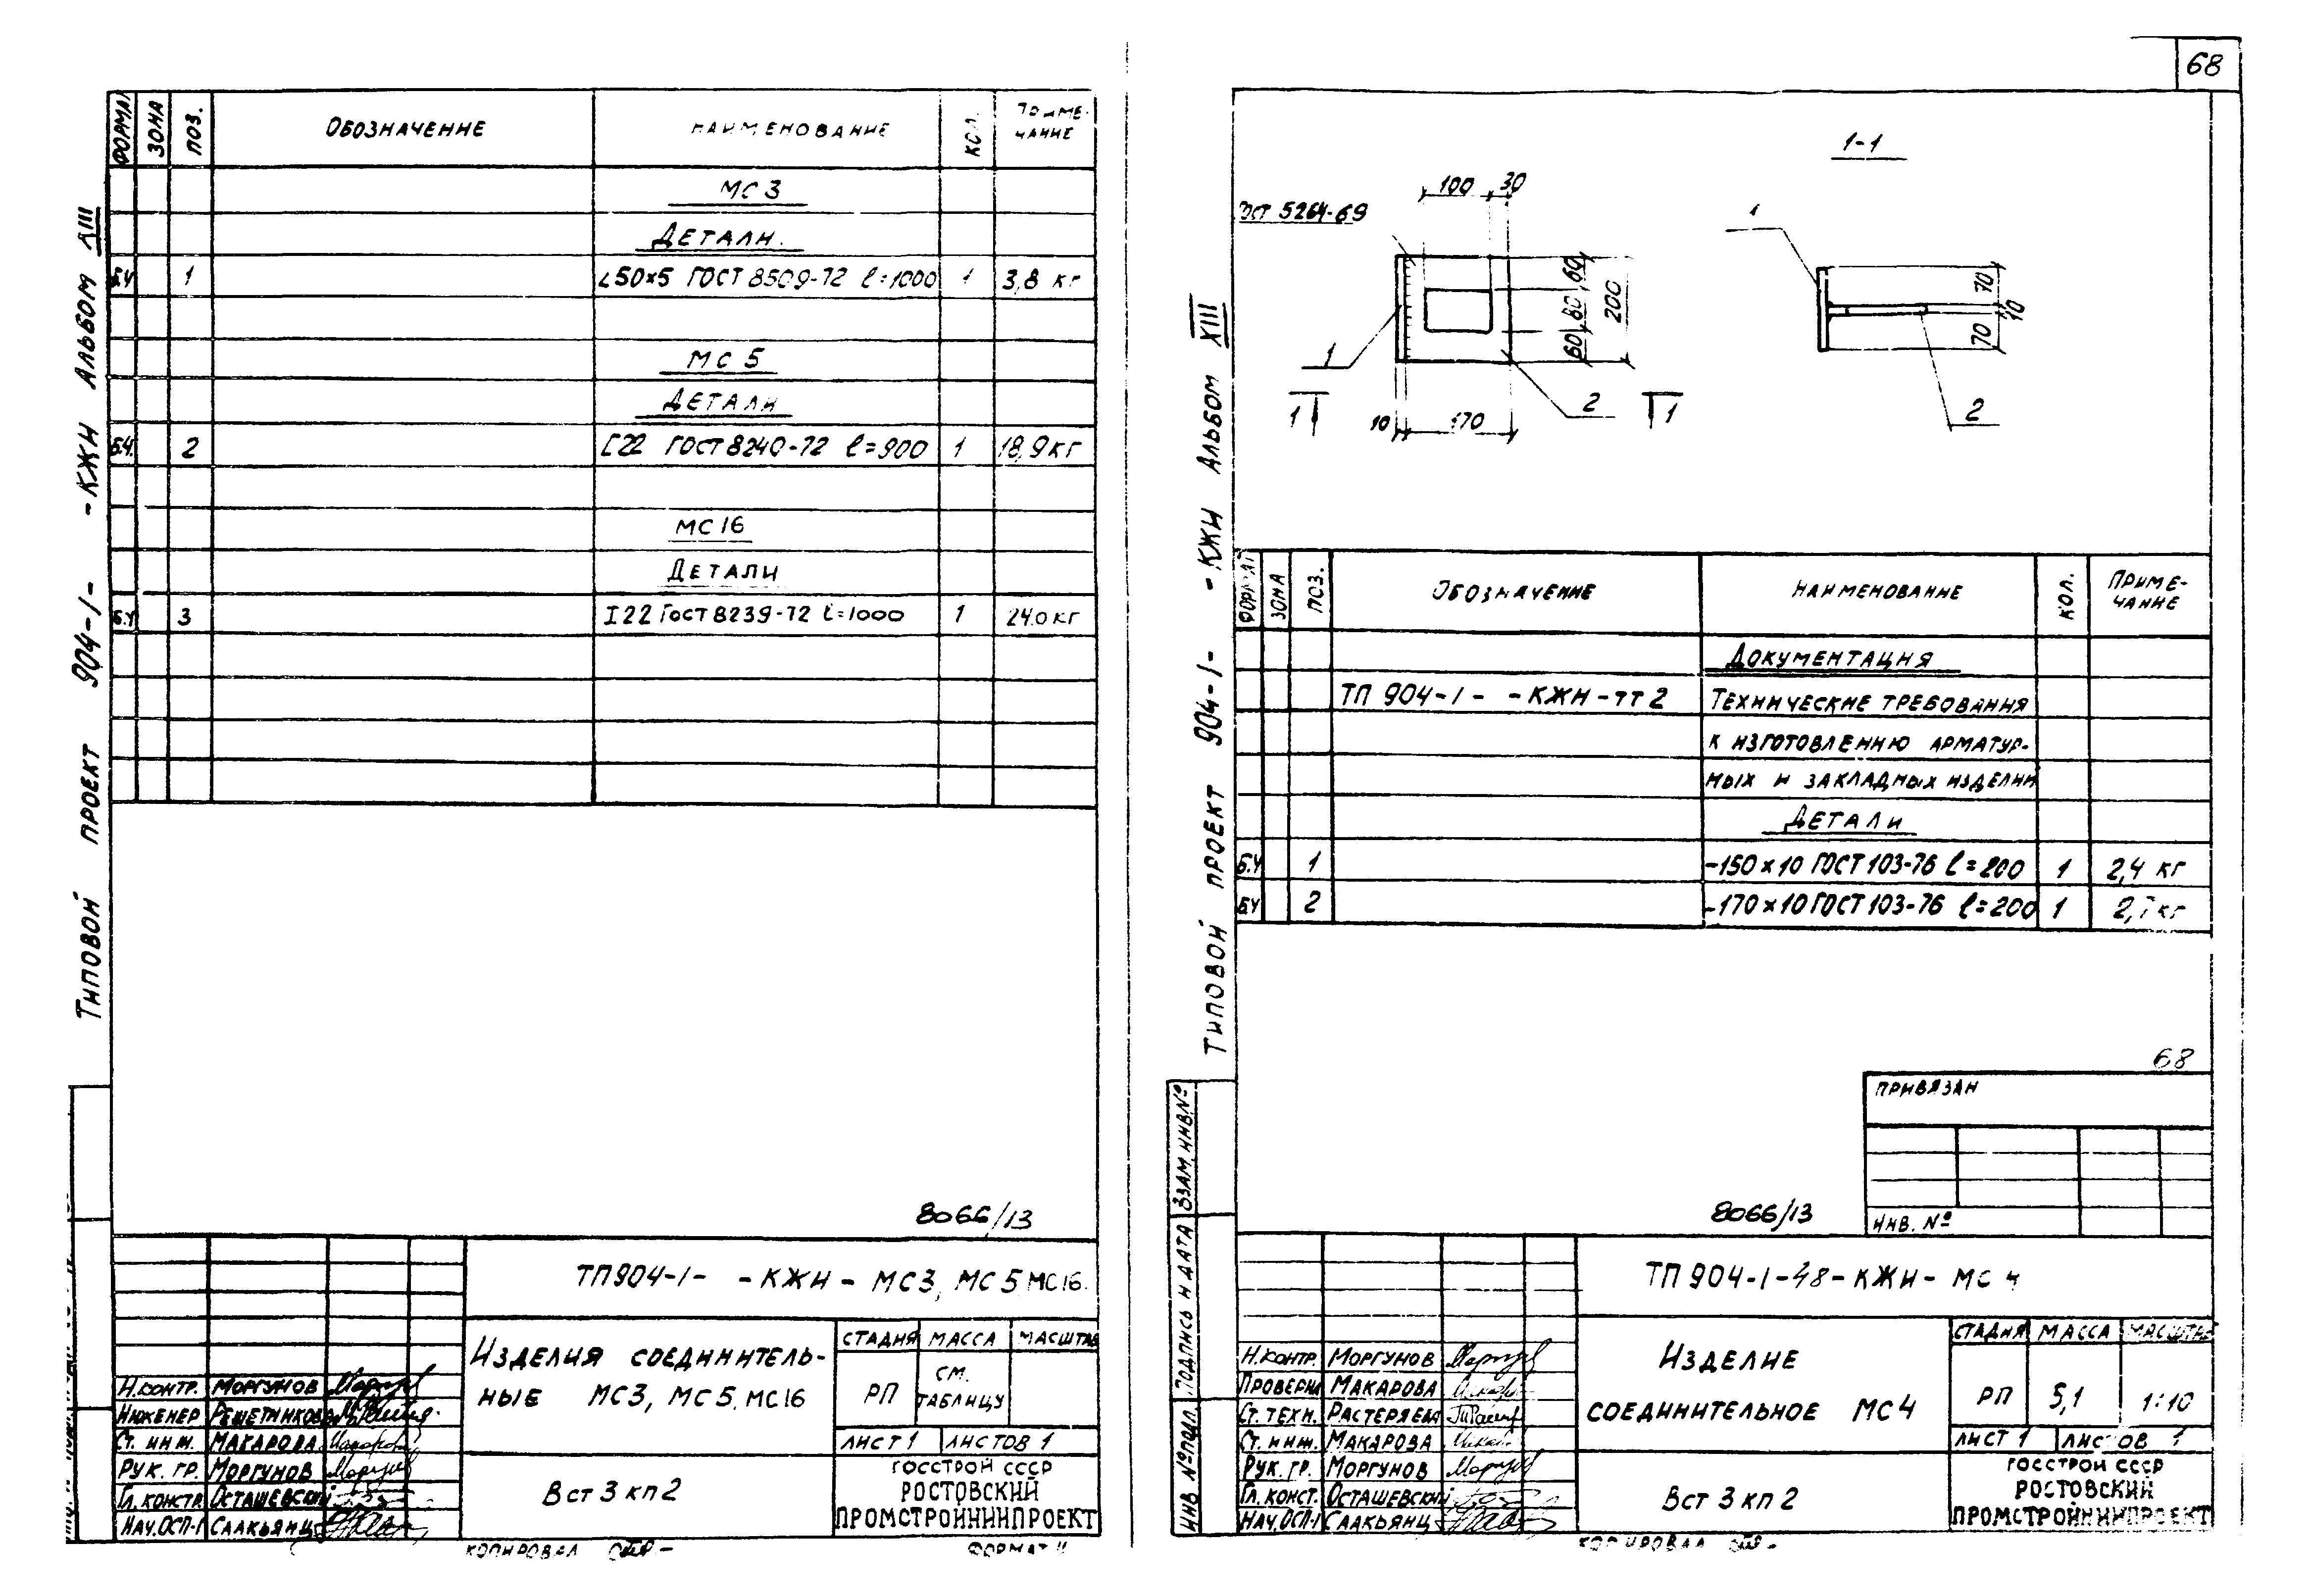 ФОРМАТ ЗОНА ПОЗ. ОБОЗНАЧЕНИЕ НАИМЕНОВАНИЕ КОЛ. ПРИМЕ-
ЧАНИЕ
МС 3
ДЕТАЛИ.
Б.Ч 1 ∟50×5 ГОСТ 8509-72 ℓ=1000 1 3,8 кг
МС 5
ДЕТАЛИ
Б.Ч. 2 [22 ГОСТ 8240-72 ℓ=900 1 18,9 кг
МС 16
ДЕТАЛИ
Б.Ч 3 I 22 ГОСТ 8239-72 ℓ=1000 1 24.0 кг
ТИПОВОЙ ПРОЕКТ 904-1- -КЖИ АЛЬБОМ XIII
8066/13
ТП 904-1- -КЖИ - МС3, МС5 МС16.
ИЗДЕЛИЯ СОЕДИНИТЕЛЬ-
НЫЕ МС3, МС5, МС16
СТАДИЯ МАССА МАСШТАБ
РП СМ.
ТАБЛИЦУ
ЛИСТ 1 ЛИСТОВ 1
Н.КОНТР. МОРГУНОВ
ИНЖЕНЕР РЕШЕТНИКОВА
СТ. ИНЖ. МАКАРОВА
РУК. ГР. МОРГУНОВ
ГЛ. КОНСТР ОСТАШЕВСКИЙ
НАЧ.ОСП-1 СААКЬЯНЦ
Вст 3 кп 2
ГОССТРОЙ СССР
РОСТОВСКИЙ
ПРОМСТРОЙНИИПРОЕКТ
КОПИРОВАЛ
ФОРМАТ 11
68
1-1
ГОСТ 5264-69
100 30
60 80 60 200
1
2
1 1
10 170
1
70 10 70
2
ФОРМАТ ЗОНА ПОЗ. ОБОЗНАЧЕНИЕ НАИМЕНОВАНИЕ КОЛ. ПРИМЕ-
ЧАНИЕ
ДОКУМЕНТАЦИЯ
ТП 904-1- -КЖИ-ТТ 2 ТЕХНИЧЕСКИЕ ТРЕБОВАНИЯ
К ИЗГОТОВЛЕНИЮ АРМАТУР-
НЫХ И ЗАКЛАДНЫХ ИЗДЕЛИЙ
ДЕТАЛИ
Б.Ч 1 -150×10 ГОСТ 103-76 ℓ=200 1 2,4 кг
Б.Ч 2 -170×10 ГОСТ 103-76 ℓ=200 1 2,7 кг
ТИПОВОЙ ПРОЕКТ 904-1- -КЖИ АЛЬБОМ XIII
68
ПРИВЯЗАН
ИНВ. №
8066/13
ИНВ №ПОДЛ. ПОДПИСЬ И ДАТА ВЗАМ.ИНВ.№
ТП 904-1-48-КЖИ- МС 4
ИЗДЕЛИЕ
СОЕДИНИТЕЛЬНОЕ МС4
СТАДИЯ МАССА МАСШТАБ
РП 5,1 1:10
ЛИСТ 1 ЛИСТОВ 1
Н.КОНТР. МОРГУНОВ
ПРОВЕРИЛ МАКАРОВА
СТ. ТЕХН. РАСТЕРЯЕВА
СТ. ИНЖ. МАКАРОВА
РУК. ГР. МОРГУНОВ
ГЛ. КОНСТ. ОСТАШЕВСКИЙ
НАЧ.ОСП-1 СААКЬЯНЦ
Вст 3 кп 2
ГОССТРОЙ СССР
РОСТОВСКИЙ
ПРОМСТРОЙНИИПРОЕКТ
КОПИРОВАЛ